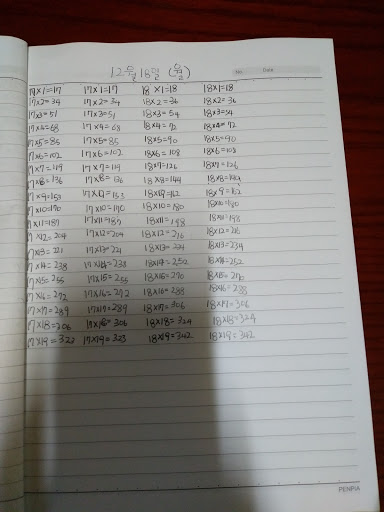 12월 18일 (월)
No. Date
17×1=17 17×1=17 18×1=18 18×1=18
17×2=34 17×2=34 18×2=36 18×2=36
17×3=51 17×3=51 18×3=54 18×3=54
17×4=68 17×4=68 18×4=72 18×4=72
17×5=85 17×5=85 18×5=90 18×5=90
17×6=102 17×6=102 18×6=108 18×6=108
17×7=119 17×7=119 18×7=126 18×7=126
17×8=136 17×8=136 18×8=144 18×8=144
17×9=153 18×9=162 18×9=162
17×10=170 17×10=170 18×10=180 18×10=180
17×11=187 17×11=187 18×11=198 18×11=198
17×12=204 17×12=204 18×12=216 18×12=216
17×13=221 17×13=221 18×13=234
17×14=238 17×14=238 18×14=252 18×14=252
17×15=255 17×15=255 18×15=270 18×15=270
17×16=272 17×16=272 18×16=288 18×16=288
17×17=289 17×17=289 18×17=306 18×17=306
17×18=306 17×18=306 18×18=324 18×18=324
17×19=323 17×19=323 18×19=342 18×19=342
PENPIA